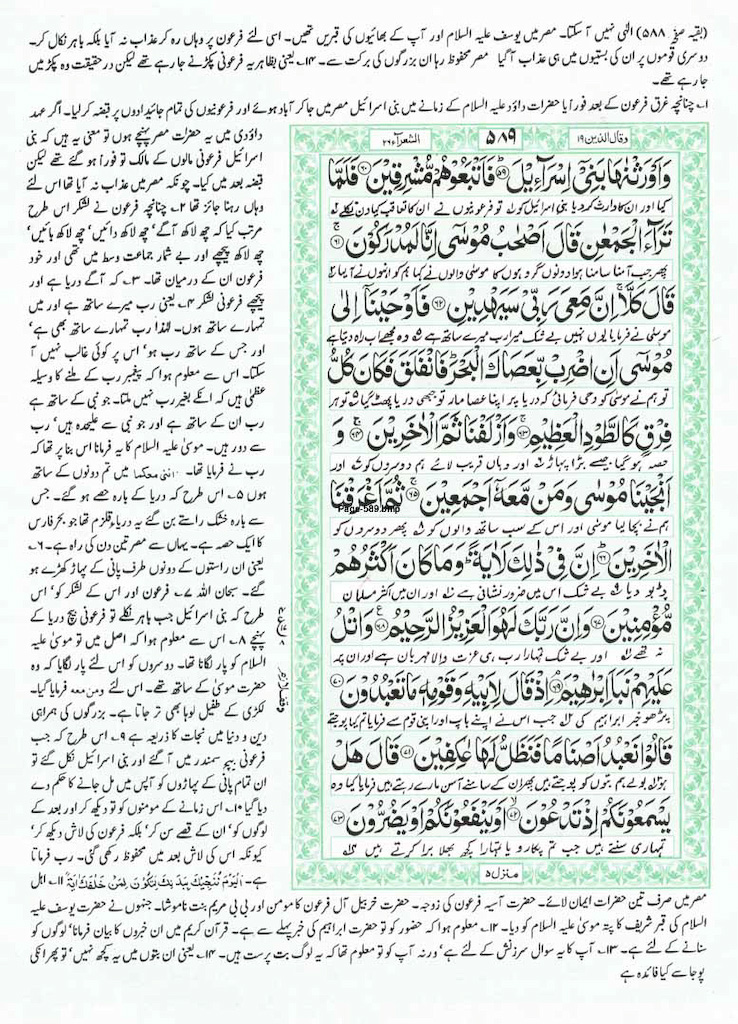 (بقیہ صفحہ ۵۸۸) الٰہی نہیں آسکتا۔ مصر میں یوسف علیہ السلام اور آپ کے بھائیوں کی قبریں تھیں۔ اسی لئے فرعون پر وہاں رہ کر عذاب نہ آیا بلکہ باہر نکال کر۔
دوسری قوموں پر ان کی بستیوں میں ہی عذاب آگیا مصر محفوظ رہا ان بزرگوں کی برکت سے۔ ۱۴۔ یعنی بظاہر یہ فرعونی پکڑنے جارہے تھے لیکن در حقیقت وہ پکڑ میں
جارہے تھے۔
۱۔ چنانچہ غرق فرعون کے بعد فوراً یا حضرات داؤد علیہ السلام کے زمانے میں بنی اسرائیل مصر میں جا کر آباد ہوئے اور فرعونیوں کی تمام جائیدادوں پر قبضہ کر لیا۔ اگر عہد
وقال الذین ۱۹
۵۸۹
الشعرآء ۲۶
وَاَوْرَثْنٰهَا بَنِيْۤ اِسْرَآءِيْلَ ۵۹ فَاَتْبَعُوْهُمْ مُّشْرِقِيْنَ ۶۰ فَلَمَّا
کیا اور ان کا وارث کردیا بنی اسرائیل کو تو فرعونیوں نے ان کا تعاقب کیا دن نکلے
تَرَآءَ الْجَمْعٰنِ قَالَ اَصْحٰبُ مُوْسٰۤى اِنَّا لَمُدْرَكُوْنَ ۶۱
پھر جب آمنا سامنا ہوا دونوں گروہوں کا موسیٰ والوں نے کہا ہم کو انہوں نے آلیا
قَالَ كَلَّا اِنَّ مَعِيَ رَبِّيْ سَيَهْدِيْنِ ۶۲ فَاَوْحَيْنَاۤ اِلٰى
موسیٰ نے فرمایا یوں نہیں بے شک میرا رب میرے ساتھ ہے وہ مجھے اب راہ دیتا ہے
مُوْسٰۤى اَنِ اضْرِبْ بِّعَصَاكَ الْبَحْرَ فَانْفَلَقَ فَكَانَ كُلُّ
تو ہم نے موسیٰ کو وحی فرمائی کہ دریا پر اپنا عصا مار تو جبھی دریا پھٹ گیا تو ہر
فِرْقٍ كَالطَّوْدِ الْعَظِيْمِ ۶۳ وَاَزْلَفْنَا ثَمَّ الْاٰخَرِيْنَ ۶۴ وَ
حصہ ہو گیا جیسے بڑا پہاڑ اور وہاں قریب لائے ہم دوسروں کو اور
اَنْجَيْنَا مُوْسٰى وَمَنْ مَّعَهٗۤ اَجْمَعِيْنَ ۶۵ ثُمَّ اَغْرَقْنَا
Page-589.bmp
ہم نے بچا لیا موسیٰ اور اس کے سب ساتھ والوں کو پھر دوسروں کو
الْاٰخَرِيْنَ ۶۶ اِنَّ فِيْ ذٰلِكَ لَاٰيَةً وَمَا كَانَ اَكْثَرُهُمْ
ڈبو دیا بے شک اس میں ضرور نشانی ہے اور ان میں اکثر مسلمان
مُّؤْمِنِيْنَ ۶۷ وَاِنَّ رَبَّكَ لَهُوَ الْعَزِيْزُ الرَّحِيْمُ ۶۸ وَاتْلُ
نہ تھے اور بے شک تمہارا رب ہی عزت والا مہربان ہے اور ان پر
عَلَيْهِمْ نَبَاَ اِبْرٰهِيْمَ ۶۹ اِذْ قَالَ لِاَبِيْهِ وَقَوْمِهٖ مَا تَعْبُدُوْنَ ۷۰
پڑھو خبر ابراہیم کی جب اس نے اپنے باپ اور اپنی قوم سے فرمایا تم کیا پوجتے
قَالُوْا نَعْبُدُ اَصْنَامًا فَنَظَلُّ لَهَا عٰكِفِيْنَ ۷۱ قَالَ هَلْ
ہو بولے ہم بتوں کو پوجتے ہیں پھر ان کے سامنے آسن مارے رہتے ہیں فرمایا کیا وہ
يَسْمَعُوْنَكُمْ اِذْ تَدْعُوْنَ ۷۲ اَوْ يَنْفَعُوْنَكُمْ اَوْ يَضُرُّوْنَ ۷۳
تمہاری سنتے ہیں جب تم پکارو یا تمہارا کچھ بھلا برا کرتے ہیں
منزل ۵
داؤدی میں یہ حضرات مصر پہنچے ہوں تو معنی یہ ہیں کہ بنی
اسرائیل فرعونی مالوں کے مالک تو فوراً ہو گئے تھے لیکن
قبضہ بعد میں کیا۔ چونکہ مصر میں عذاب نہ آیا تھا اس لئے
وہاں رہنا جائز تھا ۲۔ چنانچہ فرعون نے لشکر اس طرح
مرتب کیا کہ چھ لاکھ آگے' چھ لاکھ دائیں' چھ لاکھ بائیں'
چھ لاکھ پیچھے اور بے شمار جماعت وسط میں تھی اور خود
فرعون ان کے درمیان تھا۔ ۳۔ کہ آگے دریا ہے اور
پیچھے فرعونی لشکر ۴۔ یعنی رب میرے ساتھ ہے اور میں
تمہارے ساتھ ہوں۔ لہٰذا رب تمہارے ساتھ بھی ہے'
اور جس کے ساتھ رب ہو' اس پر کوئی غالب نہیں آ
سکتا۔ اس سے معلوم ہوا کہ پیغمبر رب کے ملنے کا وسیلہ
عظمیٰ ہیں کہ انکے بغیر رب نہیں ملتا۔ جو نبی کے ساتھ ہے
رب ان کے ساتھ ہے اور جو نبی سے علیحدہ ہیں' رب
سے دور ہیں۔ موسیٰ علیہ السلام کا یہ فرمانا اس بنا پر تھا کہ
رب نے فرمایا تھا۔ اننی معکما میں تم دونوں کے ساتھ
ہوں ۵۔ اس طرح کہ دریا کے بارہ حصے ہو گئے۔ جس
سے بارہ خشک راستے بن گئے یہ دریاء قلزم تھا جو بحر فارس
کا ایک حصہ ہے۔ یہاں سے مصر تین دن کی راہ ہے۔ ۶۔
یعنی ان راستوں کے دونوں طرف پانی کے پہاڑ کھڑے ہو
گئے۔ سبحان اللہ ۷۔ فرعون اور اس کے لشکر کو' اس
طرح کہ بنی اسرائیل جب باہر نکلے تو فرعونی بیچ دریا کے
پہنچے ۸۔ اس سے معلوم ہوا کہ اصل میں تو موسیٰ علیہ
السلام کو پار لگانا تھا۔ دوسروں کو اس لئے پار لگایا کہ وہ
حضرت موسیٰ کے ساتھ تھے۔ اس لئے ومن معہ فرمایا گیا۔
لکڑی کے طفیل لوہا بھی تر جاتا ہے۔ بزرگوں کی ہمراہی
دین و دنیا میں نجات کا ذریعہ ہے ۹۔ اس طرح کہ جب
فرعونی بیچ سمندر میں آگئے اور بنی اسرائیل نکل گئے تو
ان تمام پانی کے پہاڑوں کو آپس میں مل جانے کا حکم دے
دیا گیا ۱۰۔ اس زمانے کے مومنوں کو تو دیکھ کر اور بعد کے
لوگوں کو' ان کے قصے سن کر' بلکہ فرعون کی لاش دیکھ کر'
کیونکہ اس کی لاش بعد میں محفوظ رکھی گئی۔ رب فرماتا
ہے۔ الیوم ننجیک ببدنک لتکون لمن خلفک اٰیۃ ۱۱۔ اہل
مصر میں صرف تین حضرات ایمان لائے۔ حضرت آسیہ فرعون کی زوجہ۔ حضرت خربیل آل فرعون کا مومن اور بی بی مریم بنت ناموشا۔ جنہوں نے حضرت یوسف علیہ
السلام کی قبر شریف کا پتہ موسیٰ علیہ السلام کو دیا۔ ۱۲۔ معلوم ہوا کہ حضور کو تو حضرت ابراہیم کی خبر پہلے سے ہے۔ قرآن کریم میں ان خبروں کا بیان فرمانا' لوگوں کو
سنانے کے لئے ہے۔ ۱۳۔ آپ کا یہ سوال سرزنش کے لئے ہے' ورنہ آپ کو تو معلوم تھا کہ یہ لوگ بت پرست ہیں۔ ۱۴۔ یعنی ان بتوں میں یہ کچھ نہیں' تو پھر انکی
پوجا سے کیا فائدہ ہے